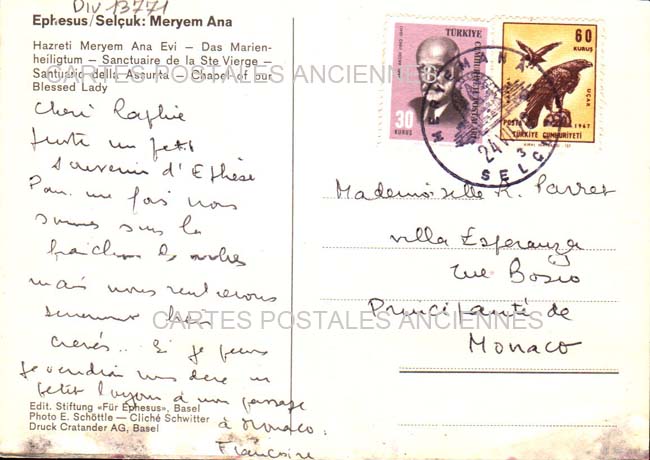 Div 13771
Ephesus/Selçuk: Meryem Ana
Hazreti Meryem Ana Evi – Das Marien-
heiligtum – Sanctuaire de la Ste Vierge –
Santuario della Assunta – Chapel of our
Blessed Lady
CARTES POSTALES ANCIENNES
Chéri
juste un petit
souvenir d'Ephèse
Pour une fois nous
sommes sous la
fraîcheur
mais nous rentrerons
sûrement très
crevés.. Si je peux
je viendrai vous dire un
petit bonjour à mon passage
à Monaco.
Françoise
Edit. Stiftung «Für Ephesus», Basel
Photo E. Schöttle – Cliché Schwitter
Druck Cratander AG, Basel
TÜRKİYE
CUMHURİYETİ
30
KURUŞ
60
KURUŞ
UÇAK
POSTA
1967
TÜRKİYE CUMHURİYETİ
MERYEM ANA
24
3
SELÇ
Mademoiselle R. Parret
villa Esperanza
rue Bosio
Principauté de
Monaco
CARTES POSTALES ANCIENNES